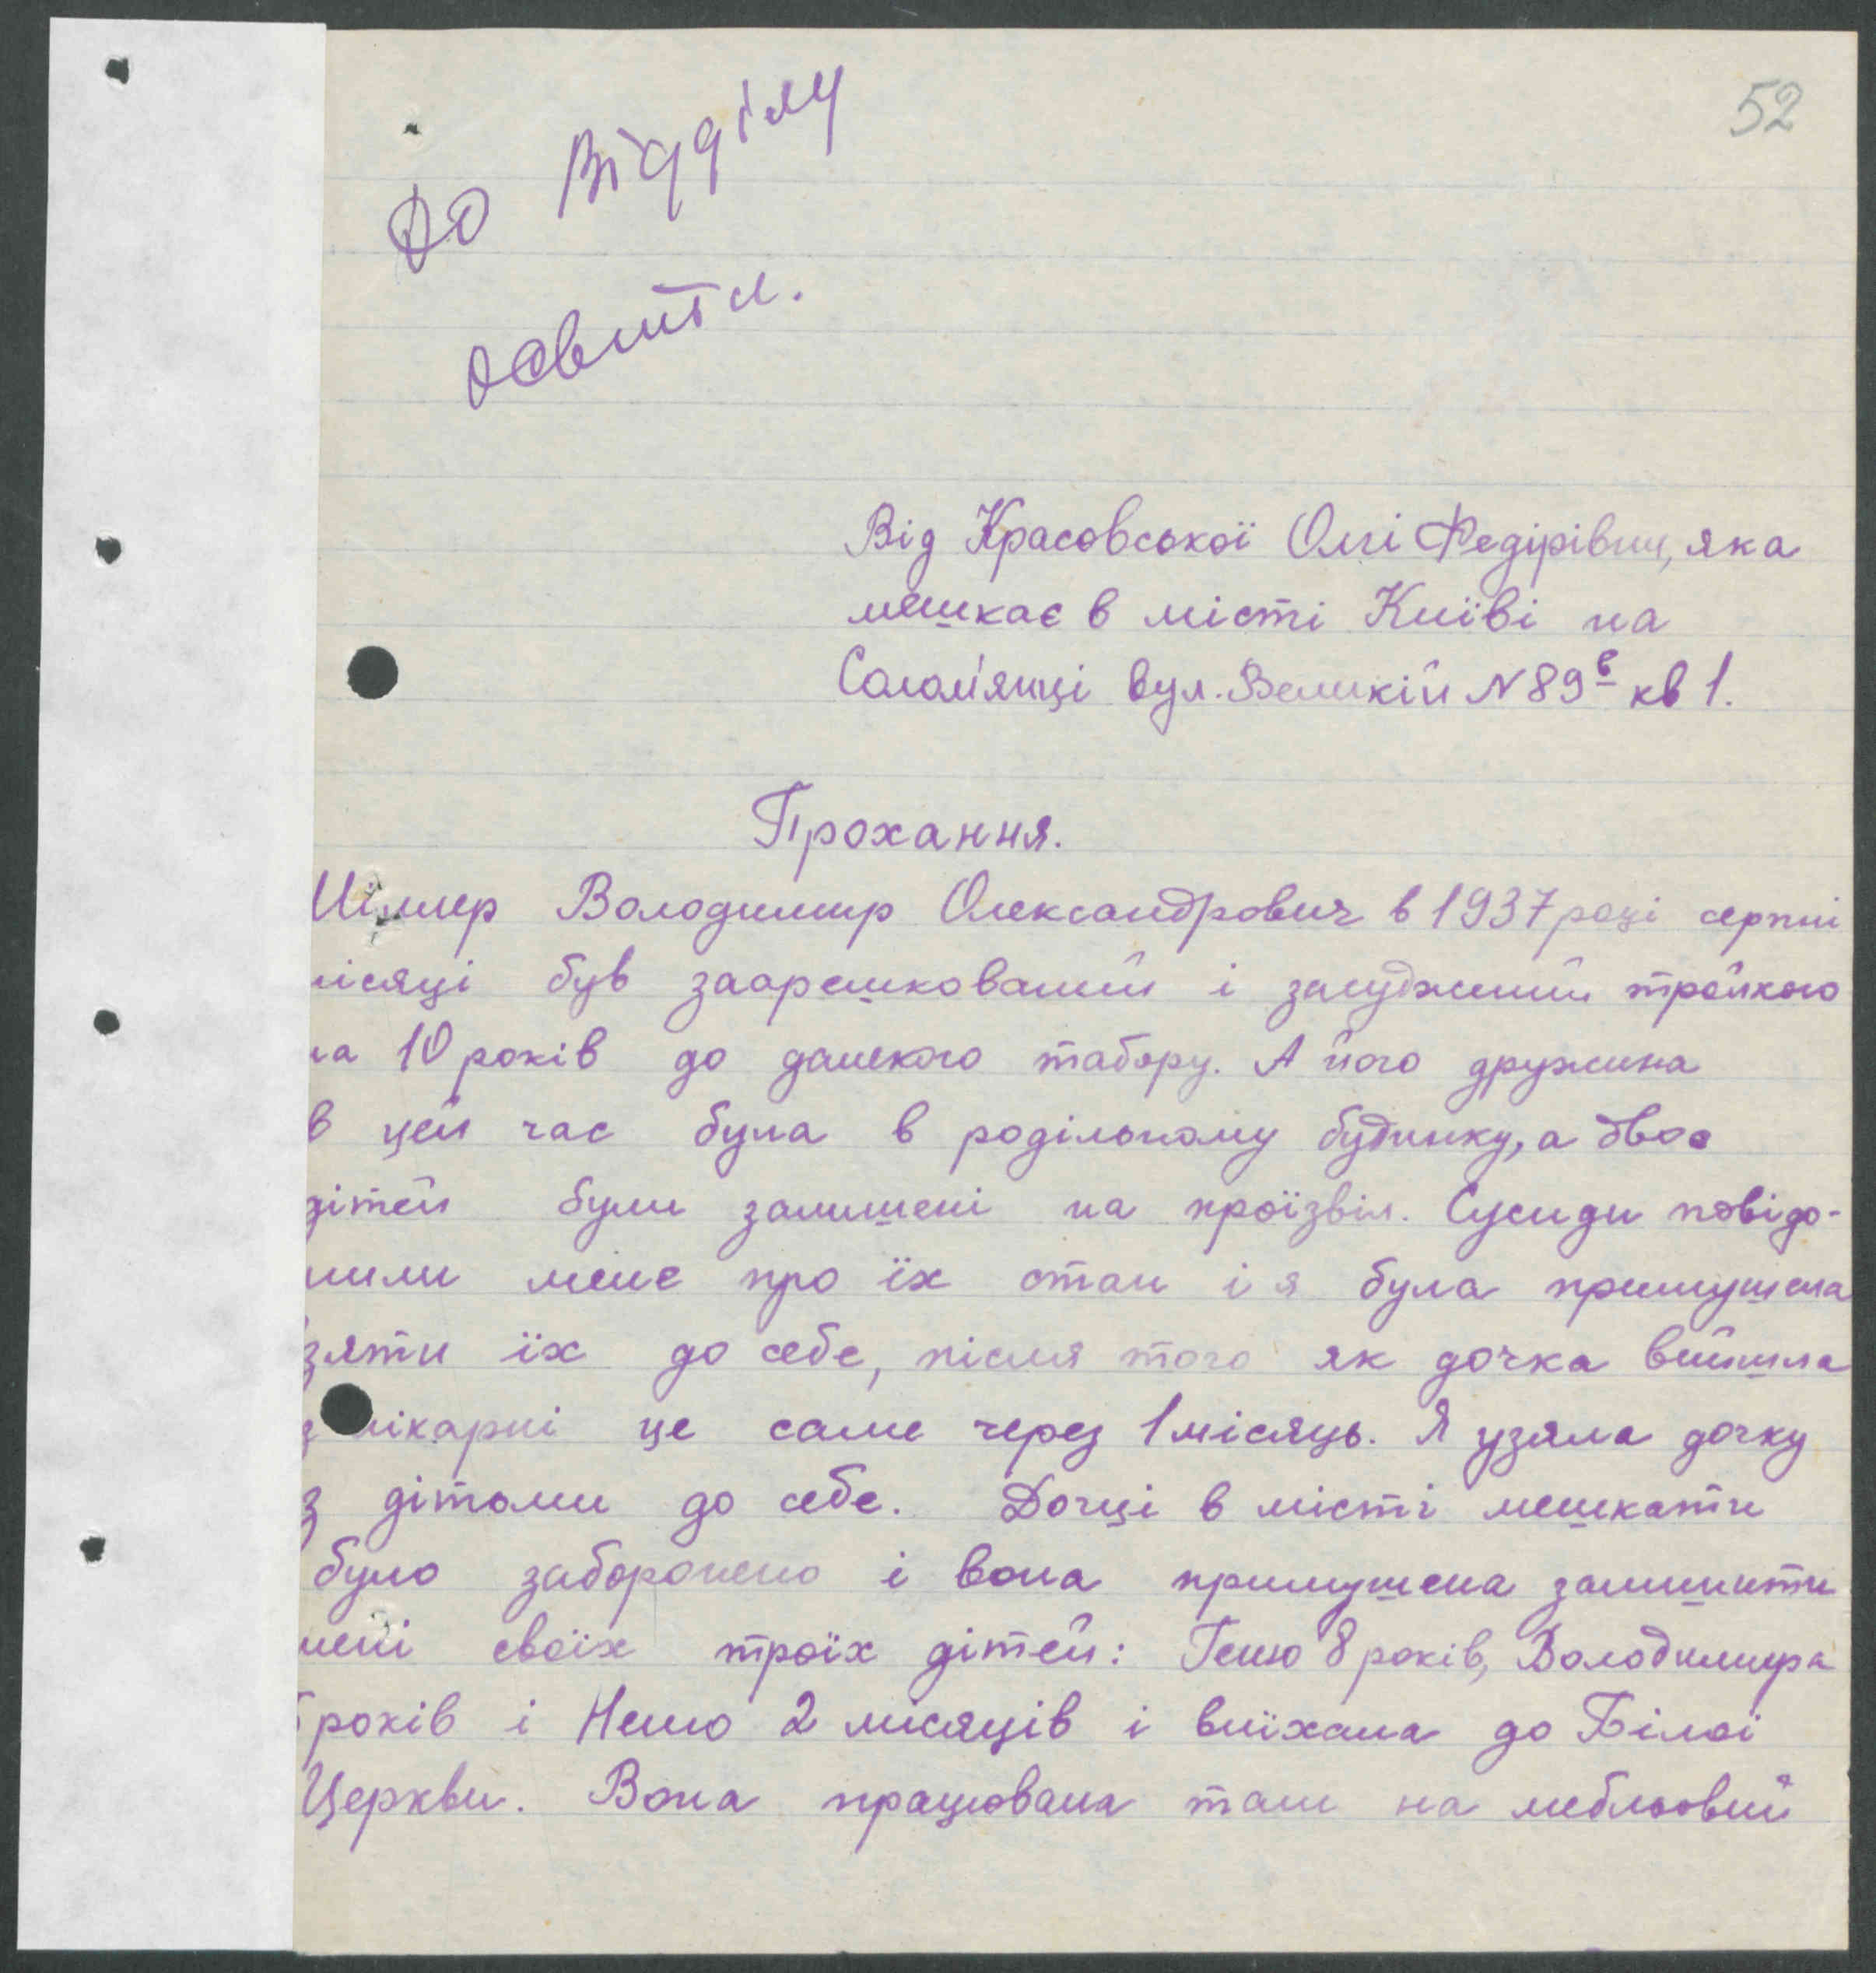 52
До Відділу
освити.
Від Красовської Олгі Федірівни, яка
мешкає в місті Київі на
Солом'янці вул. Великій N 89в кв 1.
Прохання.
Шіллер Володимир Олександрович в 1937 році серпні
місяці був заарешкований і засуджиний тройкою
на 10 років до далекого табору. А його дружина
в цей час була в родільному будинку, а двоє
дітей були залишені на проїзвіл. Сусиди повідо-
мили мене про їх стан і я була примушена
взяти їх до себе, після того як дочка вийшла
з лікарні це саме через 1 місяць. Я узяла дочку
з дітоми до себе. Дочці в місті мешкати
було заборонено і вона примушена залишити
мені своїх троїх дітей: Геню 8 років, Володимира
років і Нелю 2 місяців і виїхала до Білої
Церкви. Вона працювала там на мебльовий